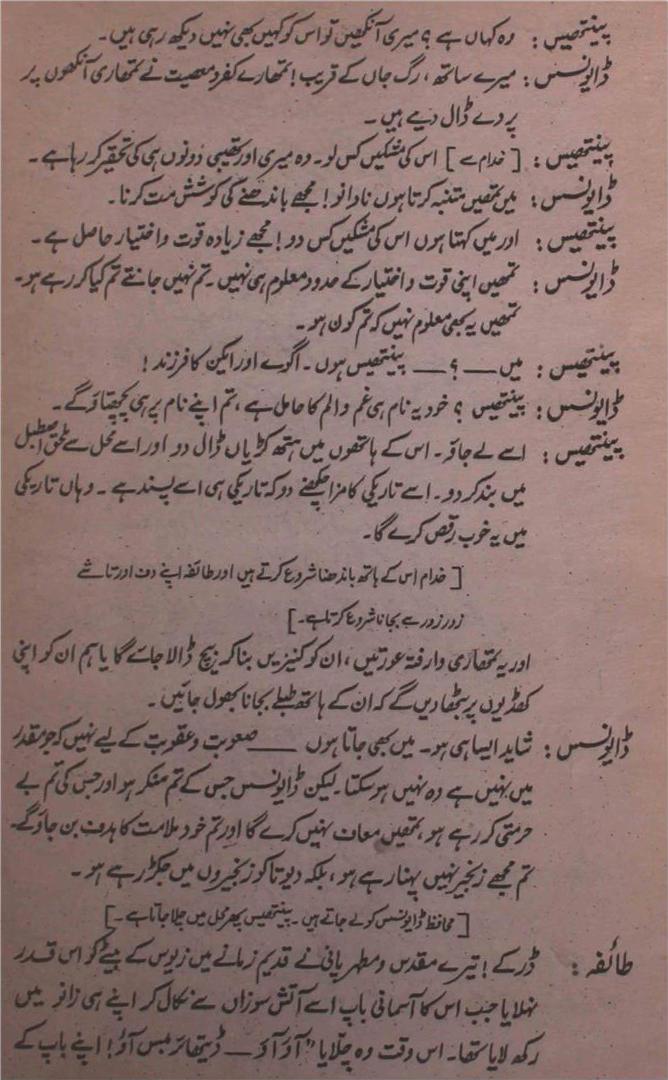 پینتھیس : وہ کہاں ہے ؟ میری آنکھیں تو اس کو کہیں بھی نہیں دیکھ رہی ہیں۔
ڈایونسس : میرے ساتھ ، رگ جاں کے قریب ! تمھارے کفر و معصیت نے تمھاری آنکھوں پر
پردے ڈال دیے ہیں ۔
پینتھیس : [ خدام سے ] اس کی مشکیں کس لو ۔ وہ میری اور تھیبی دونوں ہی کی تحقیر کر رہا ہے ۔
ڈایونسس : میں تمھیں متنبہ کرتا ہوں نادانو ! مجھے باندھنے کی کوشش مت کرنا ۔
پینتھیس : اور میں کہتا ہوں اس کی مشکیں کس دو ! مجھے زیادہ قوت و اختیار حاصل ہے ۔
ڈایونسس : تمھیں اپنی قوت و اختیار کے حدود معلوم ہی نہیں ۔ تم نہیں جانتے تم کیا کر رہے ہو ۔
تمھیں یہ بھی معلوم نہیں کہ تم کون ہو ۔
پینتھیس : میں —— ؟ —— پینتھیس ہوں ۔ اگوے اور ایکن کا فرزند !
ڈایونسس : پینتھیس ؟ خود یہ نام ہی غم و الم کا حامل ہے ، تم اپنے نام پر ہی پچھتاؤ گے ۔
پینتھیس : اسے لے جاؤ ۔ اس کے ہاتھوں میں ہتھ کڑیاں ڈال دو اور اسے محل سے ملحق اصطبل
میں بند کر دو ۔ اسے تاریکی کا مزا چکھنے دو کہ تاریکی ہی اسے پسند ہے ۔ وہاں تاریکی
میں یہ خوب رقص کرے گا ۔
[ خدام اس کے ہاتھ باندھنا شروع کرتے ہیں اور طائفہ اپنے دف اور تاشے
زور زور سے بجانا شروع کرتا ہے ۔ ]
اور یہ تمھاری وارفتہ عورتیں ، ان کو کنیزیں بنا کر بیچ ڈالا جائے گا یا ہم ان کو اپنی
کھڈیوں پر بٹھا دیں گے کہ ان کے ہاتھ طبلے بجانا بھول جائیں ۔
ڈایونسس : شاید ایسا ہی ہو ۔ میں بھی جاتا ہوں —— صعوبت و عقوبت کے لیے نہیں کہ جو مقدر
میں نہیں ہے وہ نہیں ہو سکتا ۔ لیکن ڈایونسس جس کے تم منکر ہو اور جس کی تم بے
حرمتی کر رہے ہو ، تمھیں معاف نہیں کرے گا اور تم خود ملامت کا ہدف بن جاؤ گے ۔
تم مجھے زنجیر نہیں پہنا رہے ہو ، بلکہ دیوتا کو زنجیروں میں جکڑ رہے ہو ۔
[ محافظ ڈایونسس کو لے جاتے ہیں ۔ پینتھیس پھر محل میں چلا جاتا ہے ۔ ]
طائفہ : ڈرکے ! تیرے مقدس و مطہر پانی نے قدیم زمانے میں زیوس کے بیٹے کو اس قدر
نہلایا جب اس کا آسمانی باپ اسے آتش سوزاں سے نکال کر اپنے ہی زانو میں
رکھ لایا تھا ۔ اس وقت وہ چلّایا " آؤ آؤ —— ڈیتھائرمبس آؤ ! اپنے باپ کے